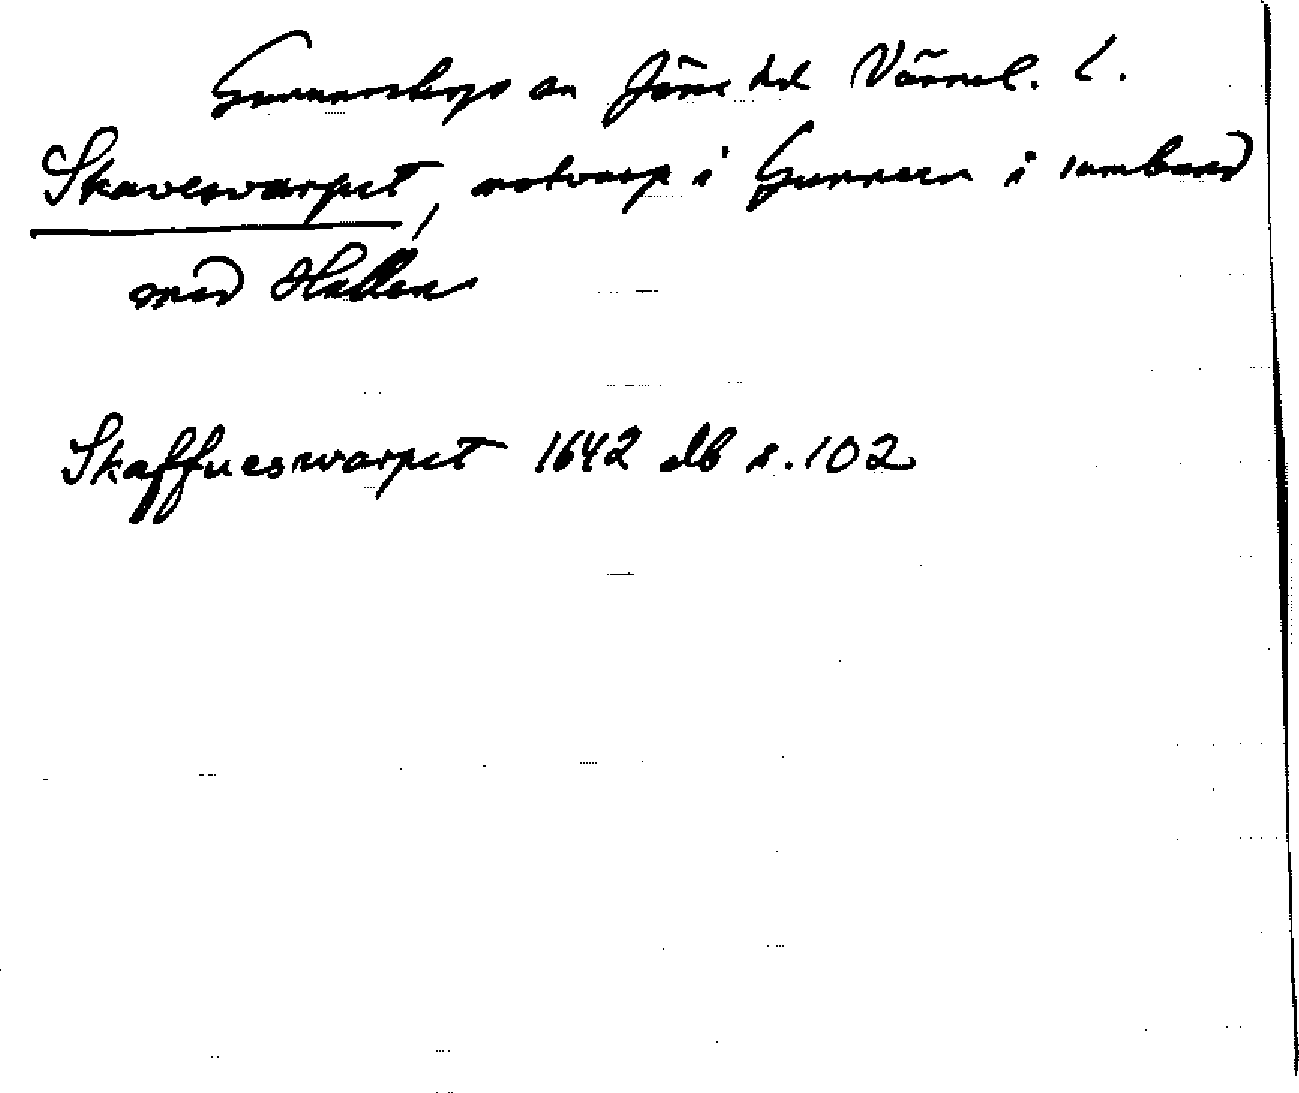 Gunnarskogs sn Jösse hd Värml. l.
Skaveswarpet, notvarp i Gunnern i samband
med Hallen
Skaffueswarpet 1642 db s. 102